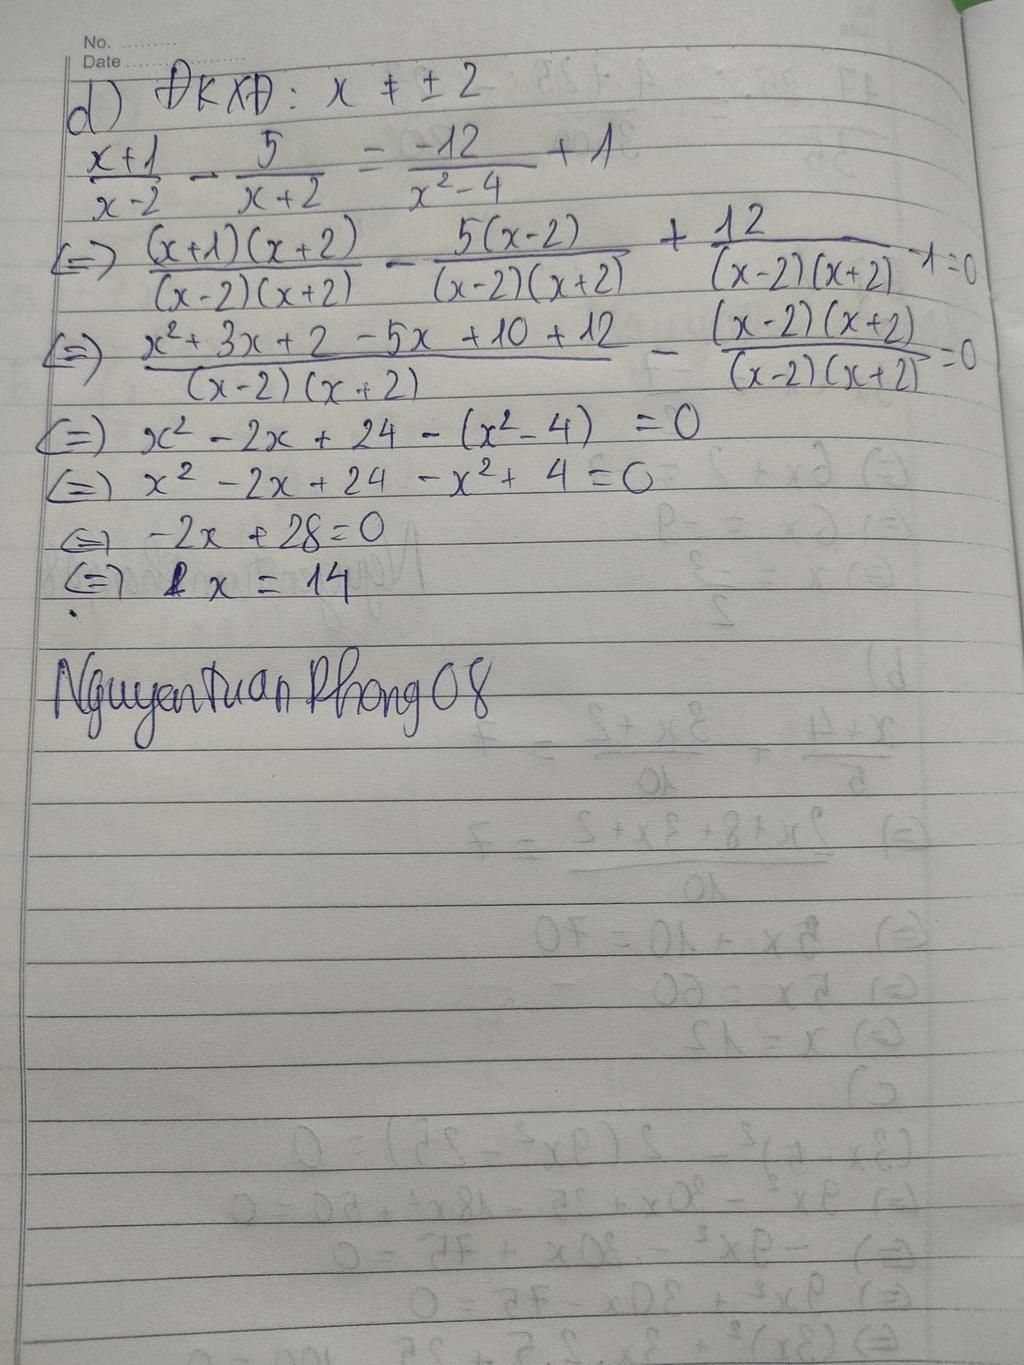 No.
Date
d) ĐKXĐ: x ≠ ± 2
(x+1)/(x-2) - 5/(x+2) = -12/(x²-4) + 1
(=) (x+1)(x+2)/(x-2)(x+2) - 5(x-2)/(x-2)(x+2) + 12/(x-2)(x+2) -1=0
(=) (x²+3x+2-5x+10+12)/(x-2)(x+2) - (x-2)(x+2)/(x-2)(x+2) =0
(=) x² - 2x + 24 - (x²-4) = 0
(=) x² - 2x + 24 - x² + 4 = 0
(=) -2x + 28 = 0
(=) x = 14
NguyenTuanPhong08